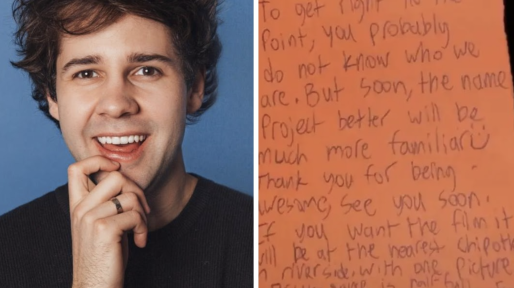 To get right to the
Point, you probably
do not know who we
are. But soon, the name
Project better will be
much more familiar
Thank you for being
awesome, see you soon.
If you want the film it
will be at the nearest chipotle
in riverside. with one picture